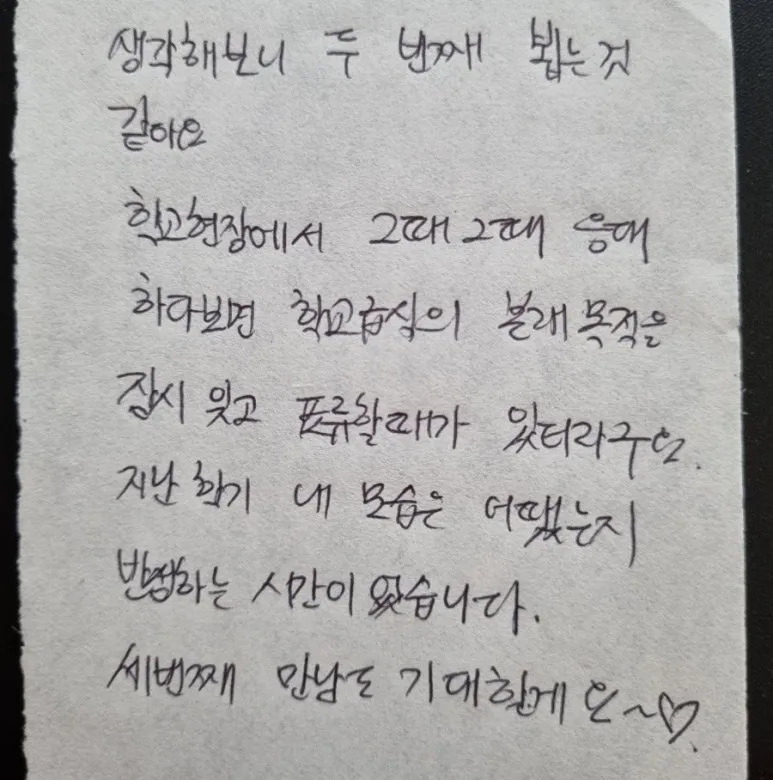 생각해보니 두 번째 뵙는것
같아요
학교현장에서 그때그때 응대
하다보면 학교급식의 본래 목적을
잠시 잊고 표류할때가 있더라구요.
지난 학기 내 모습은 어땠는지
반성하는 시간이 었습니다.
세번째 만남도 기대할게요~♡.